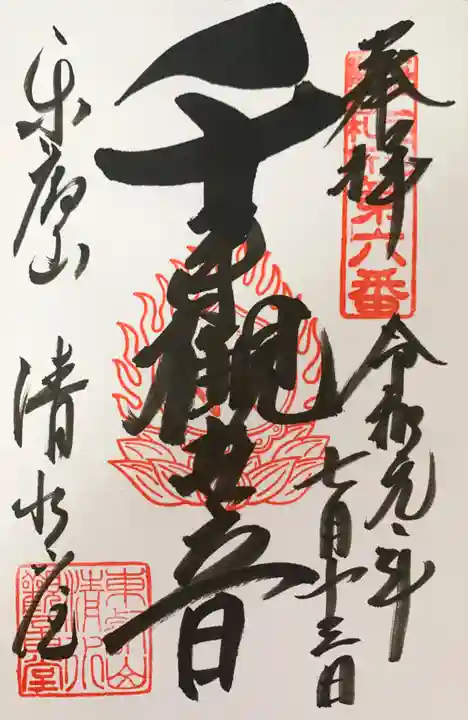 奉拝
第六番
令和元年
七月十三日
千手観世音
東叡山
清水堂
東叡山
清水
観音堂